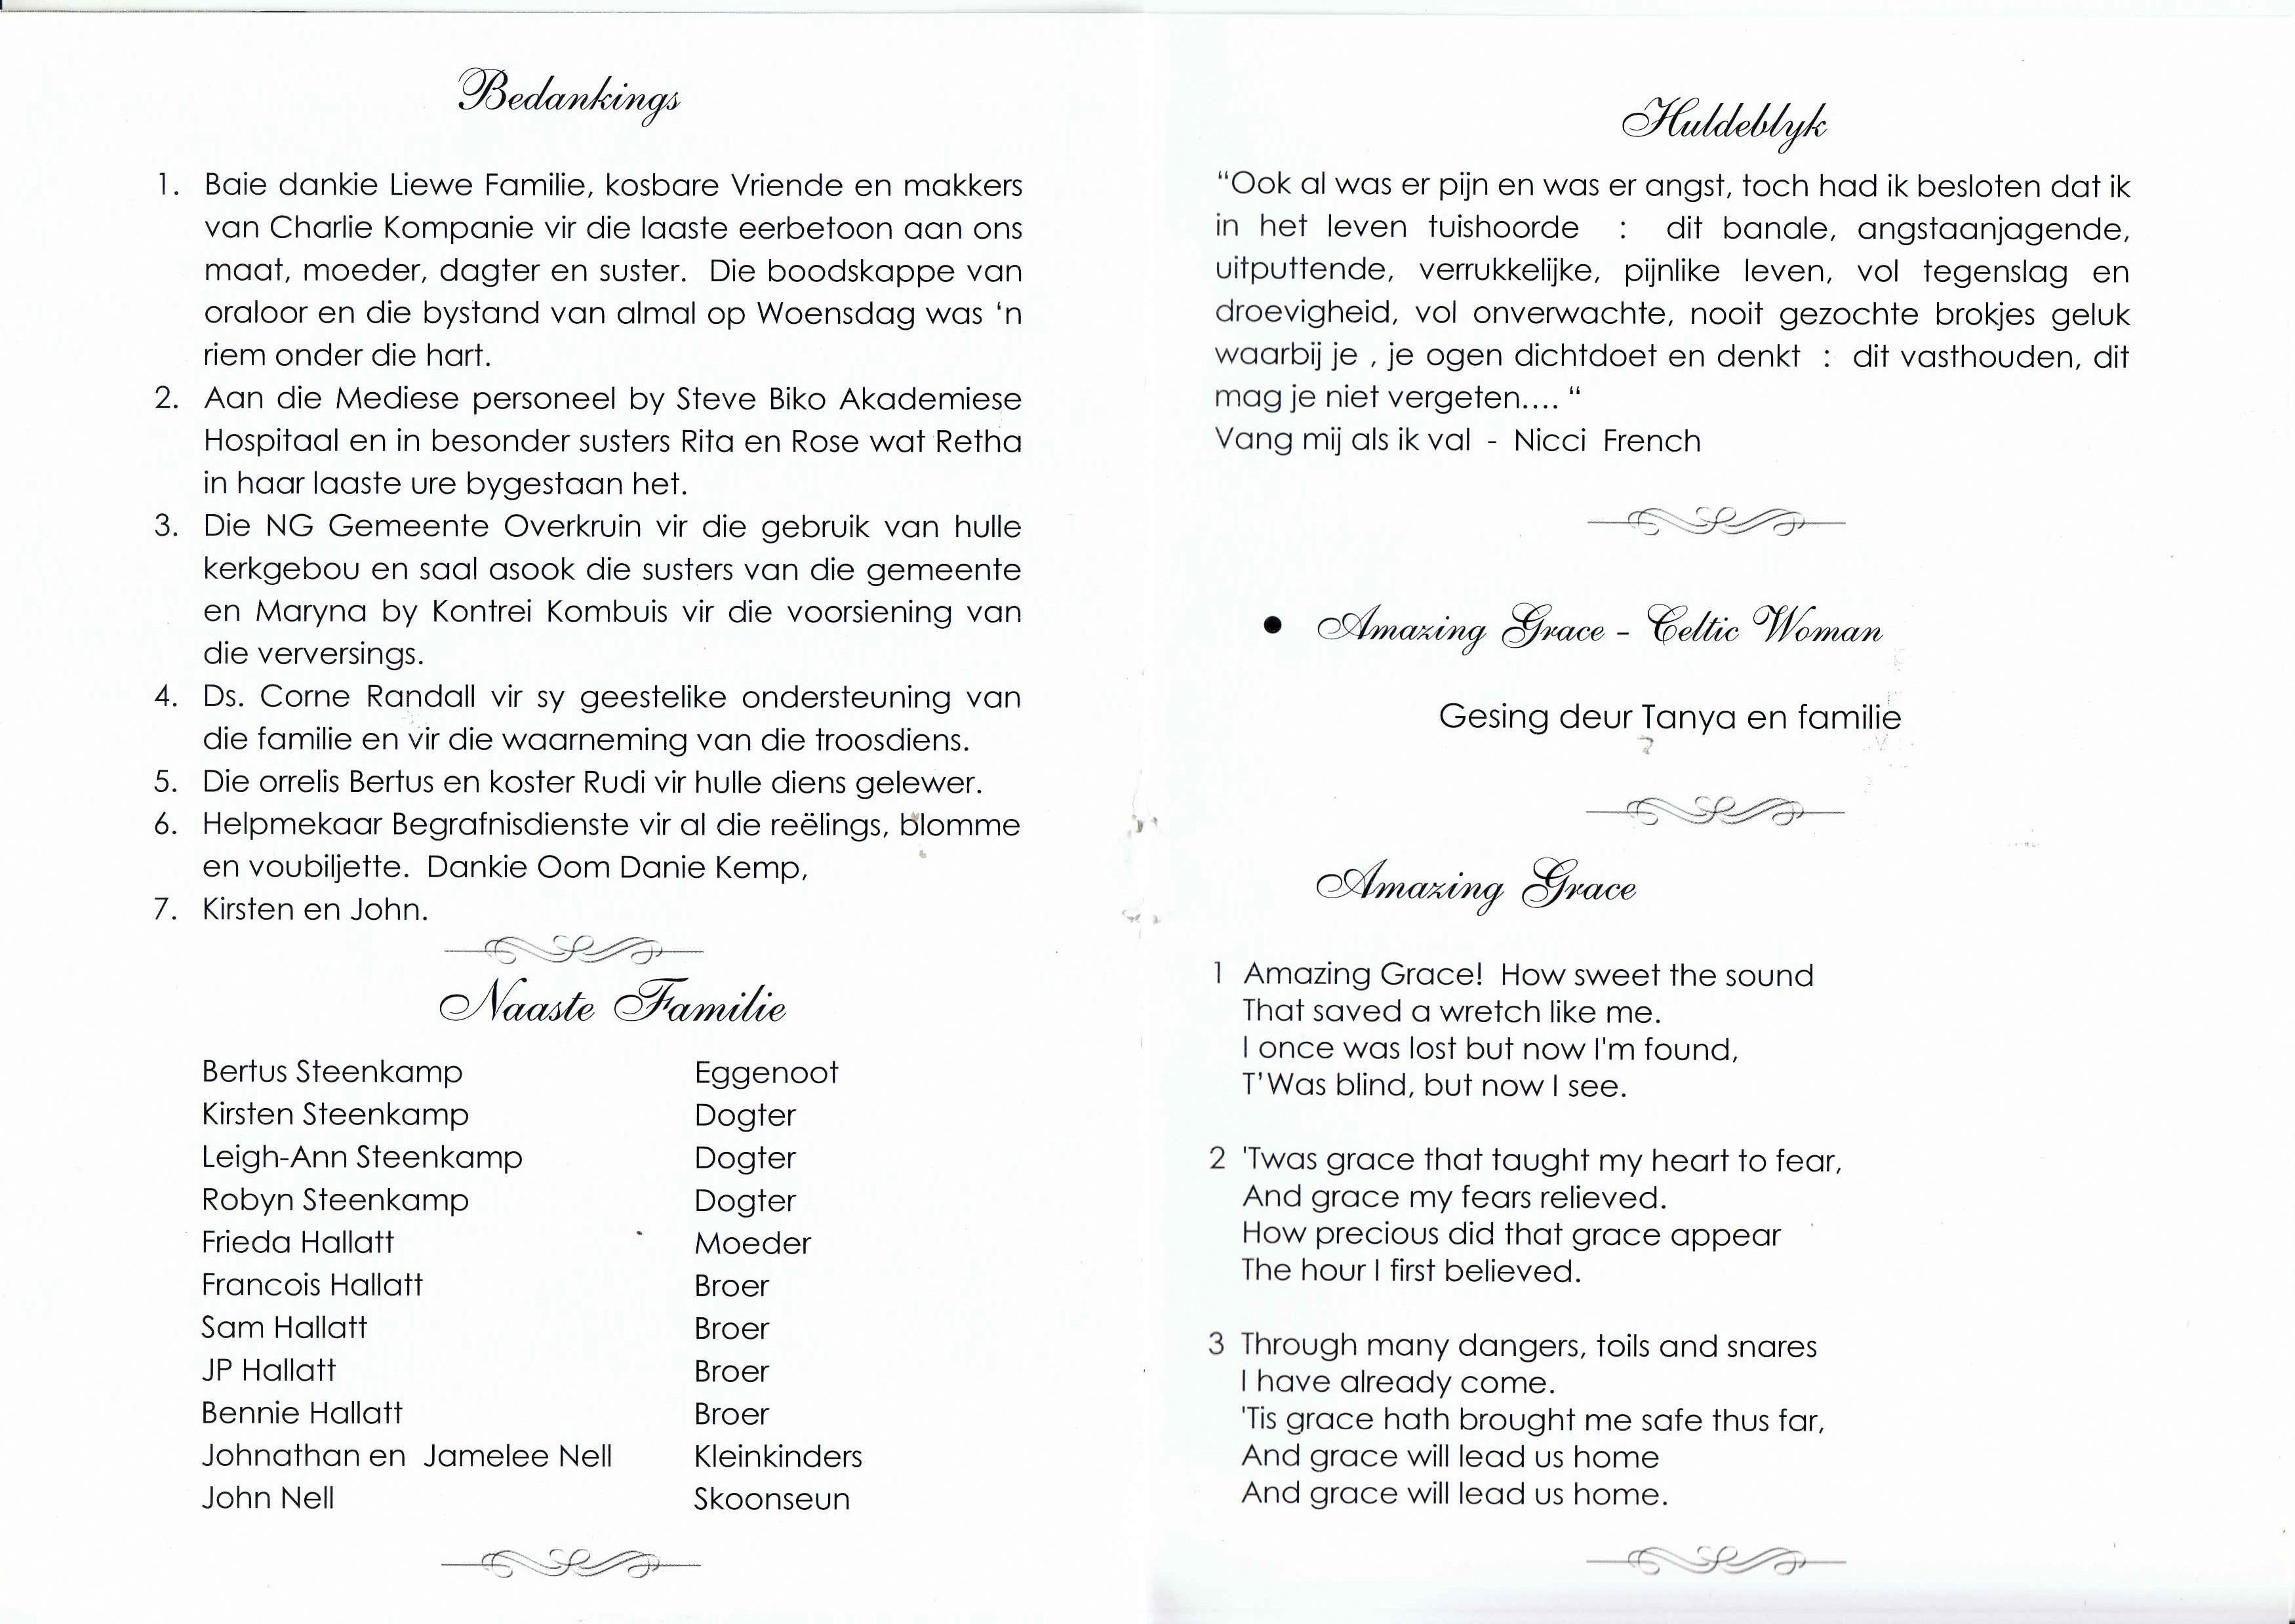 Bedankings
1. Baie dankie Liewe Familie, kosbare Vriende en makkers
van Charlie Kompanie vir die laaste eerbetoon aan ons
maat, moeder, dagter en suster. Die boodskappe van
oraloor en die bystand van almal op Woensdag was ‘n
riem onder die hart.
2. Aan die Mediese personeel by Steve Biko Akademiese
Hospitaal en in besonder susters Rita en Rose wat Retha
in haar laaste ure bygestaan het.
3. Die NG Gemeente Overkruin vir die gebruik van hulle
kerkgebou en saal asook die susters van die gemeente
en Maryna by Kontrei Kombuis vir die voorsiening van
die verversings.
4. Ds. Corne Randall vir sy geestelike ondersteuning van
die familie en vir die waarneming van die troosdiens.
5. Die orrelis Bertus en koster Rudi vir hulle diens gelewer.
6. Helpmekaar Begrafnisdienste vir al die reëlings, blomme
en voubiljette. Dankie Oom Danie Kemp,
7. Kirsten en John.
Naaste Familie
Bertus Steenkamp Eggenoot
Kirsten Steenkamp Dogter
Leigh-Ann Steenkamp Dogter
Robyn Steenkamp Dogter
Frieda Hallatt Moeder
Francois Hallatt Broer
Sam Hallatt Broer
JP Hallatt Broer
Bennie Hallatt Broer
Johnathan en Jamelee Nell Kleinkinders
John Nell Skoonseun
Huldeblyk
“Ook al was er pijn en was er angst, toch had ik besloten dat ik
in het leven tuishoorde : dit banale, angstaanjagende,
uitputtende, verrukkelijke, pijnlike leven, vol tegenslag en
droevigheid, vol onverwachte, nooit gezochte brokjes geluk
waarbij je , je ogen dichtdoet en denkt : dit vasthouden, dit
mag je niet vergeten.... “
Vang mij als ik val - Nicci French
• Amazing Grace - Celtic Woman
Gesing deur Tanya en familie
Amazing Grace
1 Amazing Grace! How sweet the sound
That saved a wretch like me.
I once was lost but now I'm found,
T’Was blind, but now I see.
2 'Twas grace that taught my heart to fear,
And grace my fears relieved.
How precious did that grace appear
The hour I first believed.
3 Through many dangers, toils and snares
I have already come.
'Tis grace hath brought me safe thus far,
And grace will lead us home
And grace will lead us home.